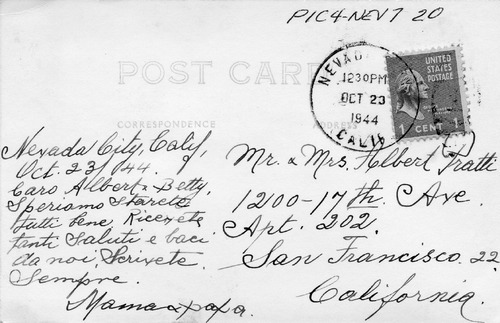 PIC4-NEV7 20
POST CARD
CORRESPONDENCE
NEVADA
1230PM
OCT 23
1944
CALIF
UNITED
STATES
POSTAGE
1 CENT 1
Nevada City, Calif,
Oct. 23/44.
Caro Albert & Betty,
Speriamo starete
tutti bene, Ricevete
tanti saluti e baci
da noi, Scrivete
Sempre.
Mama & papa.
Mr. & Mrs. Albert Pratti
1200-17th Ave.
Apt. 202.
San Francisco. 22
California.